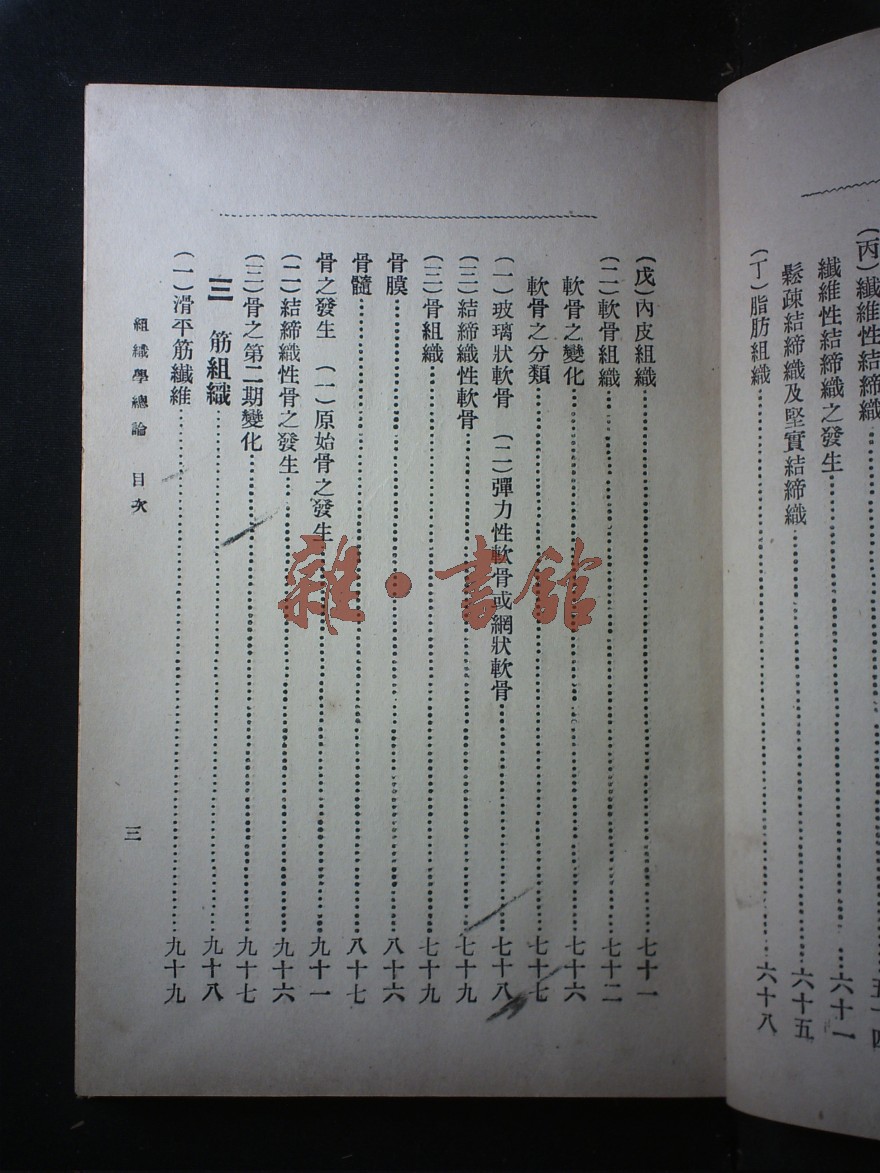 (丙)纖維性結締織……五十四
纖維性結締織之發生……六十一
鬆疎結締織及堅實結締織……六十五
(丁)脂肪組織……六十八
(戊)內皮組織……七十一
(二)軟骨組織……七十二
軟骨之變化……七十六
軟骨之分類……七十七
(一)玻璃狀軟骨 (二)彈力性軟骨或網狀軟骨……七十八
(三)結締織性軟骨……七十九
(三)骨組織……七十九
骨膜……八十六
骨髓……八十七
骨之發生 (一)原始骨之發生……九十一
(二)結締織性骨之發生……九十六
(三)骨之第二期變化……九十七
三 筋組織……九十八
(一)滑平筋纖維……九十九
組織學總論 目次
三
雜·書館